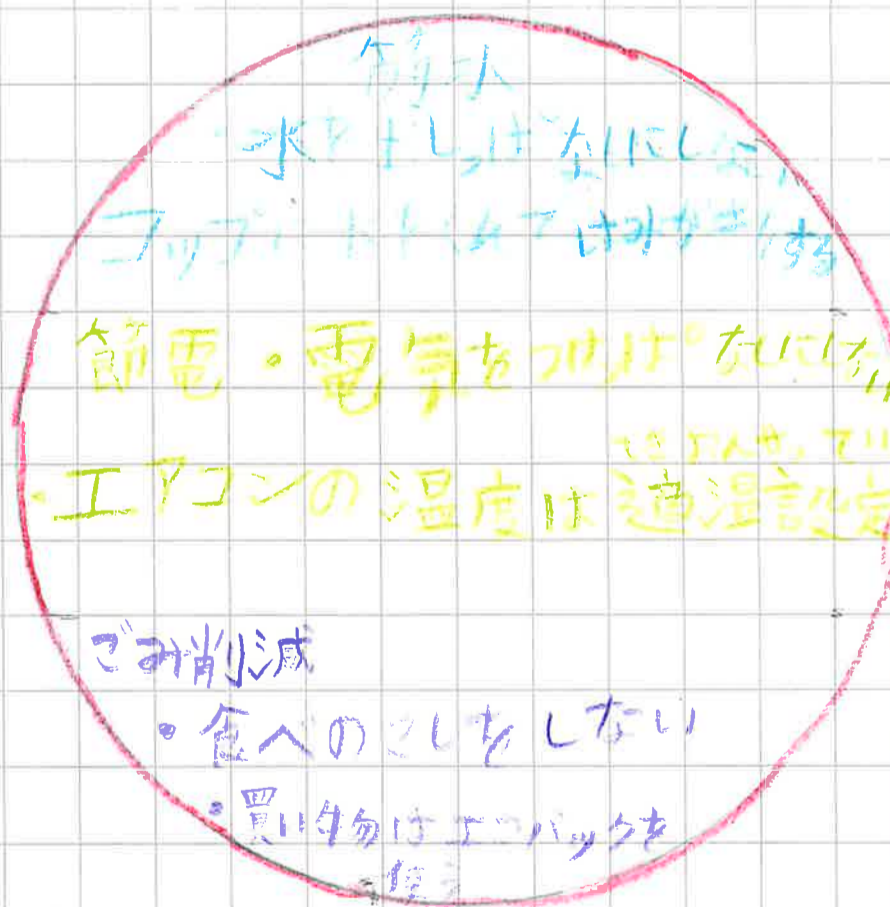 節水
水をだしっぱなしにしない
コップに
はみがきする
節電・電気をつけっぱなしにしない
てきおんせってい
・エアコンの温度は適温設定
ごみ削減
・食べのこしをしない
・買い物はエコバックを
使う